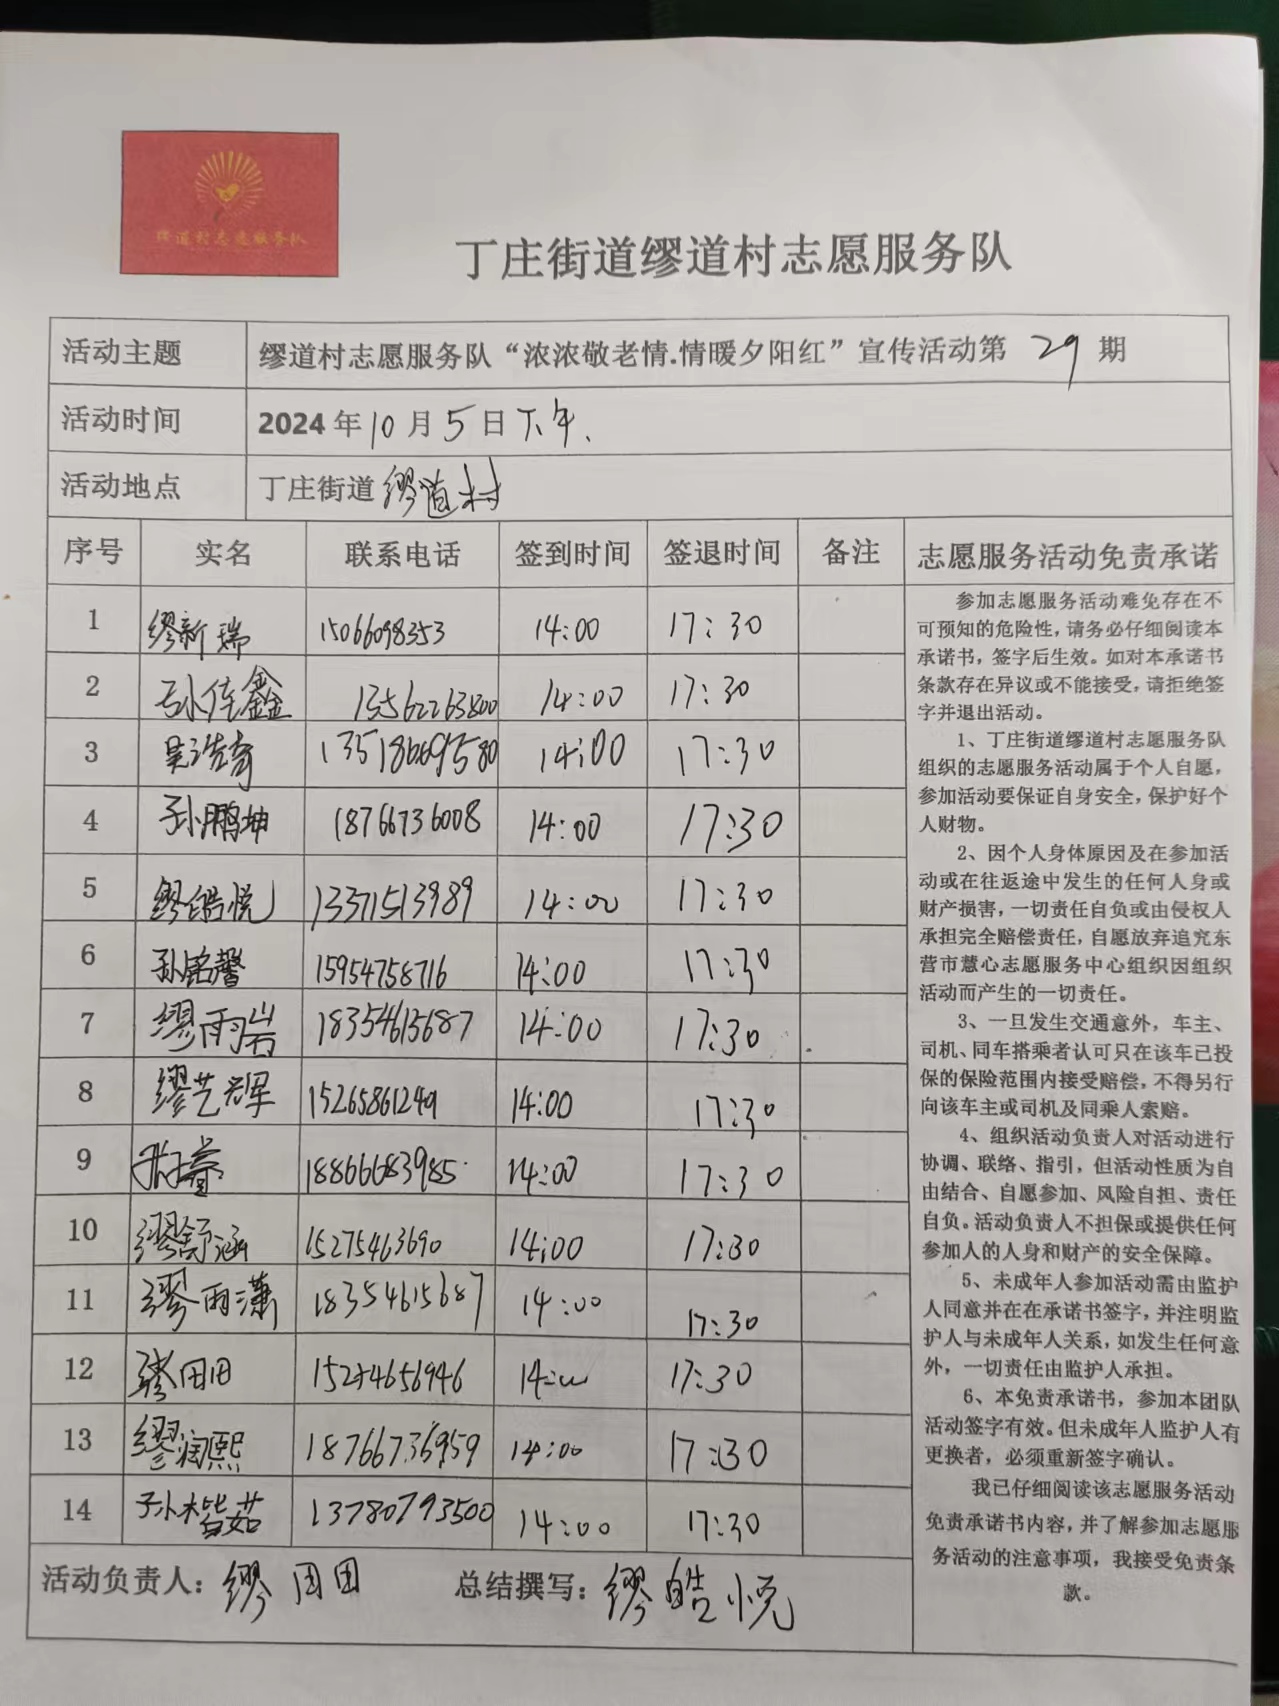 缪道村志愿服务队
丁庄街道缪道村志愿服务队
活动主题 缪道村志愿服务队“浓浓敬老情.情暖夕阳红”宣传活动第 29 期
活动时间 2024 年 10 月 5 日 下午.
活动地点 丁庄街道 缪道村
序号 实名 联系电话 签到时间 签退时间 备注
1 缪新瑞 15066098353 14:00 17:30
2 孙佳鑫 13562263800 14:00 17:30
3 吴浩奇 14:00 17:30
4 孙鹏坤 18766736008 14:00 17:30
5 缪皓悦 13371513989 14:00 17:30
6 孙铭馨 15954758716 14:00 17:30
7 缪雨岩 18354615687 14:00 17:30
8 缪艺辉 15265861249 14:00 17:30
9 18866683985 14:00 17:30
10 缪舒涵 15275463690 14:00 17:30
11 缪雨潇 18354615687 14:00 17:30
12 缪田田 15274656946 14:00 17:30
13 缪润熙 18766736959 14:00 17:30
14 孙楷茹 13780793500 14:00 17:30
活动负责人：缪团团 总结撰写：缪皓悦
志愿服务活动免责承诺
参加志愿服务活动难免存在不
可预知的危险性，请务必仔细阅读本
承诺书，签字后生效。如对本承诺书
条款存在异议或不能接受，请拒绝签
字并退出活动。
1、丁庄街道缪道村志愿服务队
组织的志愿服务活动属于个人自愿，
参加活动要保证自身安全，保护好个
人财物。
2、因个人身体原因及在参加活
动或在往返途中发生的任何人身或
财产损害，一切责任自负或由侵权人
承担完全赔偿责任，自愿放弃追究东
营市慧心志愿服务中心组织因组织
活动而产生的一切责任。
3、一旦发生交通意外，车主、
司机、同车搭乘者认可只在该车已投
保的保险范围内接受赔偿，不得另行
向该车主或司机及同乘人索赔。
4、组织活动负责人对活动进行
协调、联络、指引，但活动性质为自
由结合、自愿参加、风险自担、责任
自负。活动负责人不担保或提供任何
参加人的人身和财产的安全保障。
5、未成年人参加活动需由监护
人同意并在在承诺书签字，并注明监
护人与未成年人关系，如发生任何意
外，一切责任由监护人承担。
6、本免责承诺书，参加本团队
活动签字有效。但未成年人监护人有
更换者，必须重新签字确认。
我已仔细阅读该志愿服务活动
免责承诺书内容，并了解参加志愿服
务活动的注意事项，我接受免责条
款。